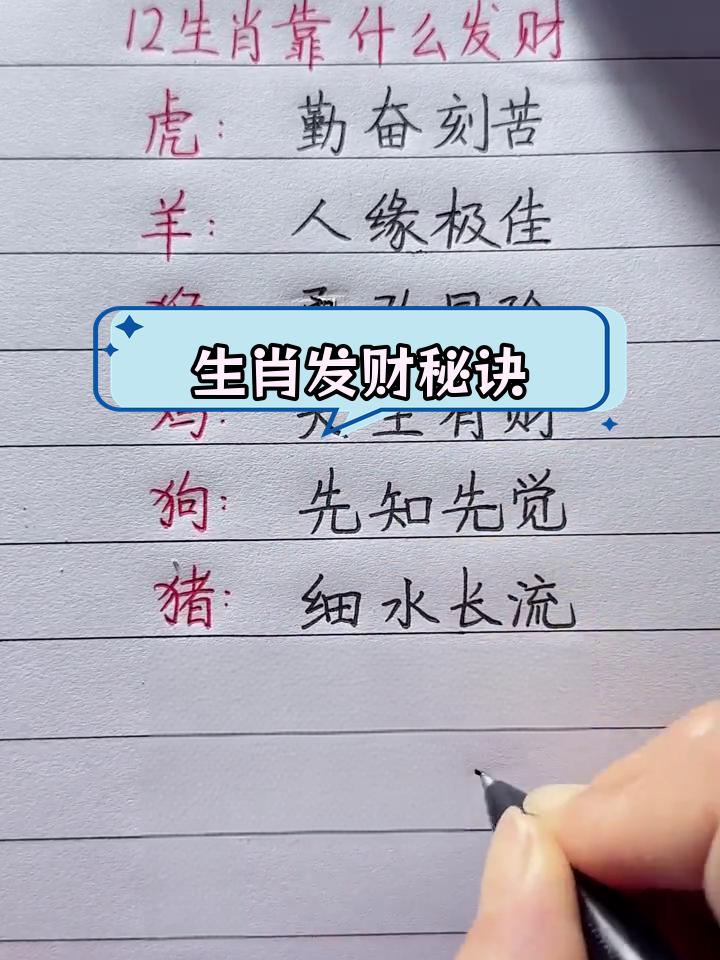 12生肖靠什么发财
虎：勤奋刻苦
羊：人缘极佳
生肖发财秘诀
鸡：有财
狗：先知先觉
猪：细水长流